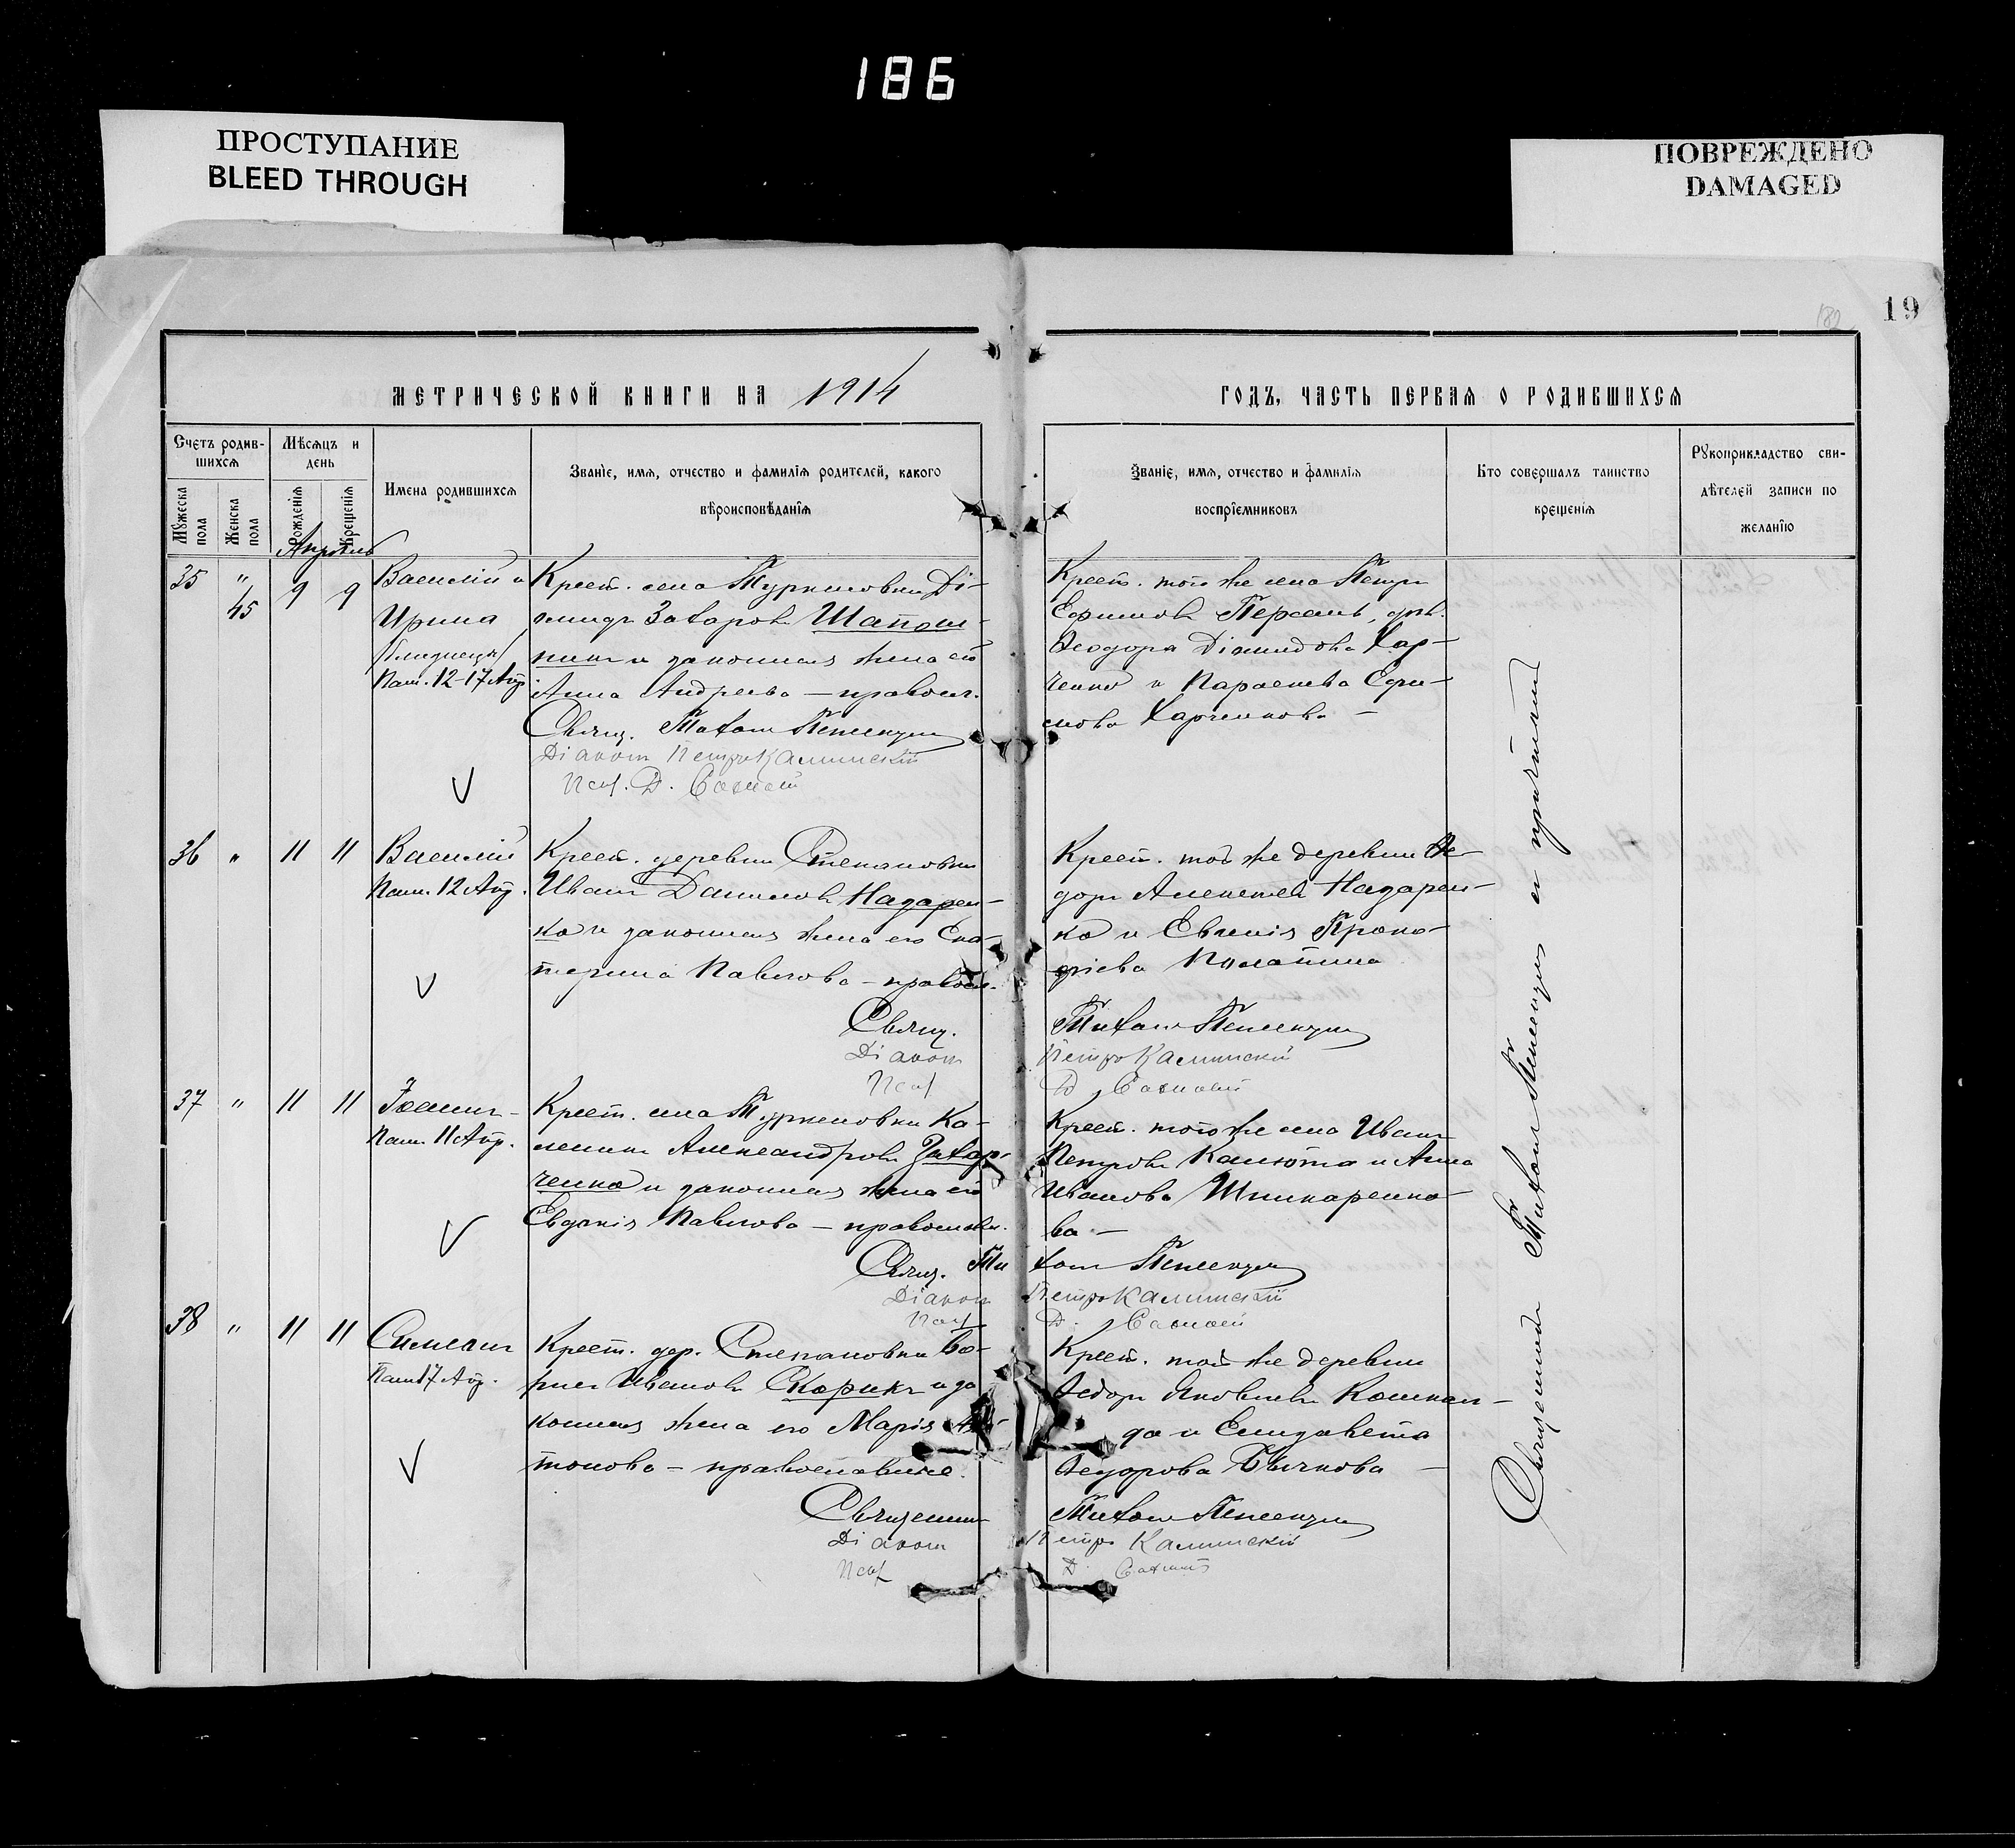 186
ПРОСТУПАНИЕ
BLEED THROUGH
ПОВРЕЖДЕНО
DAMAGED
19
182
МЕТРИЧЕСКОЙ КНИГИ НА 1914
ГОДЪ, ЧАСТЬ ПЕРВАЯ О РОДИВШИХСЯ
Счетъ родив-
шихся
Мужеска пола
Женска пола
Мѣсяцъ и
день
Рожденія
Крещенія
Имена родившихся
Званіе, имя, отчество и фамилія родителей, какого
вѣроисповѣданія
Званіе, имя, отчество и фамилія
воспріемниковъ
Кто совершалъ таинство
крещенія
Рукоприкладство сви-
дѣтелей записи по
желанію
Апрѣль
35 " 45 9 9
Василій и
Ирина
/близнецы/
Пам. 12-17 Апр
Крест. села Туркеновки Ді-
омидъ Захаровъ Шапош-
никъ и законная жена его
Анна Андреева — правосл.
Свящ. Тихонъ
Діаконъ Петръ Калинскій
Псал. Д.
Крест. того же села Петръ
Ефимовъ
Ѳеодора Діомидова Хар-
ченко и Параскева Ефи-
мова Харченкова —
36 " 11 11
Василій
Пам. 12 Апр.
Крест. деревни Степановки
Иванъ Даниловъ Назарен-
ко и законная жена его Ека-
терина Павлова — правосл.
Свящ.
Діаконъ
Псал
Крест. той же деревни Ѳе-
доръ Алексеевъ Назарен-
ко и Евгенія Проко-
фіева
Тихонъ
Петръ Калинскій
Д.
37 " 11 11
Іоаннъ —
Пам. 11 Апр.
Крест. села Туркеновки Ка-
леникъ Александровъ Захар-
ченко и законная жена его
Евдокія Павлова — православн.
Свящ. Ти
Діаконъ
Псал
Крест. того же села Иванъ
Петровъ Калюта и Анна
Иванова Шинкаренко-
ва —
хонъ
Петръ Калинскій
Д.
38 " 11 11
Симеонъ
Пам 17 Апр.
Крест. дер. Степановки Бо-
рисъ Ивановъ Скорикъ и за-
конная жена его Марія Ан-
тонова — православные.
Священникъ
Діаконъ
Псал
Крест. той же деревни
Ѳедоръ Яковлевъ
да и Елизавета
Ѳедорова Бычкова —
Тихонъ
Петръ Калинскій
Д.
Священникъ Тихонъ съ причтомъ